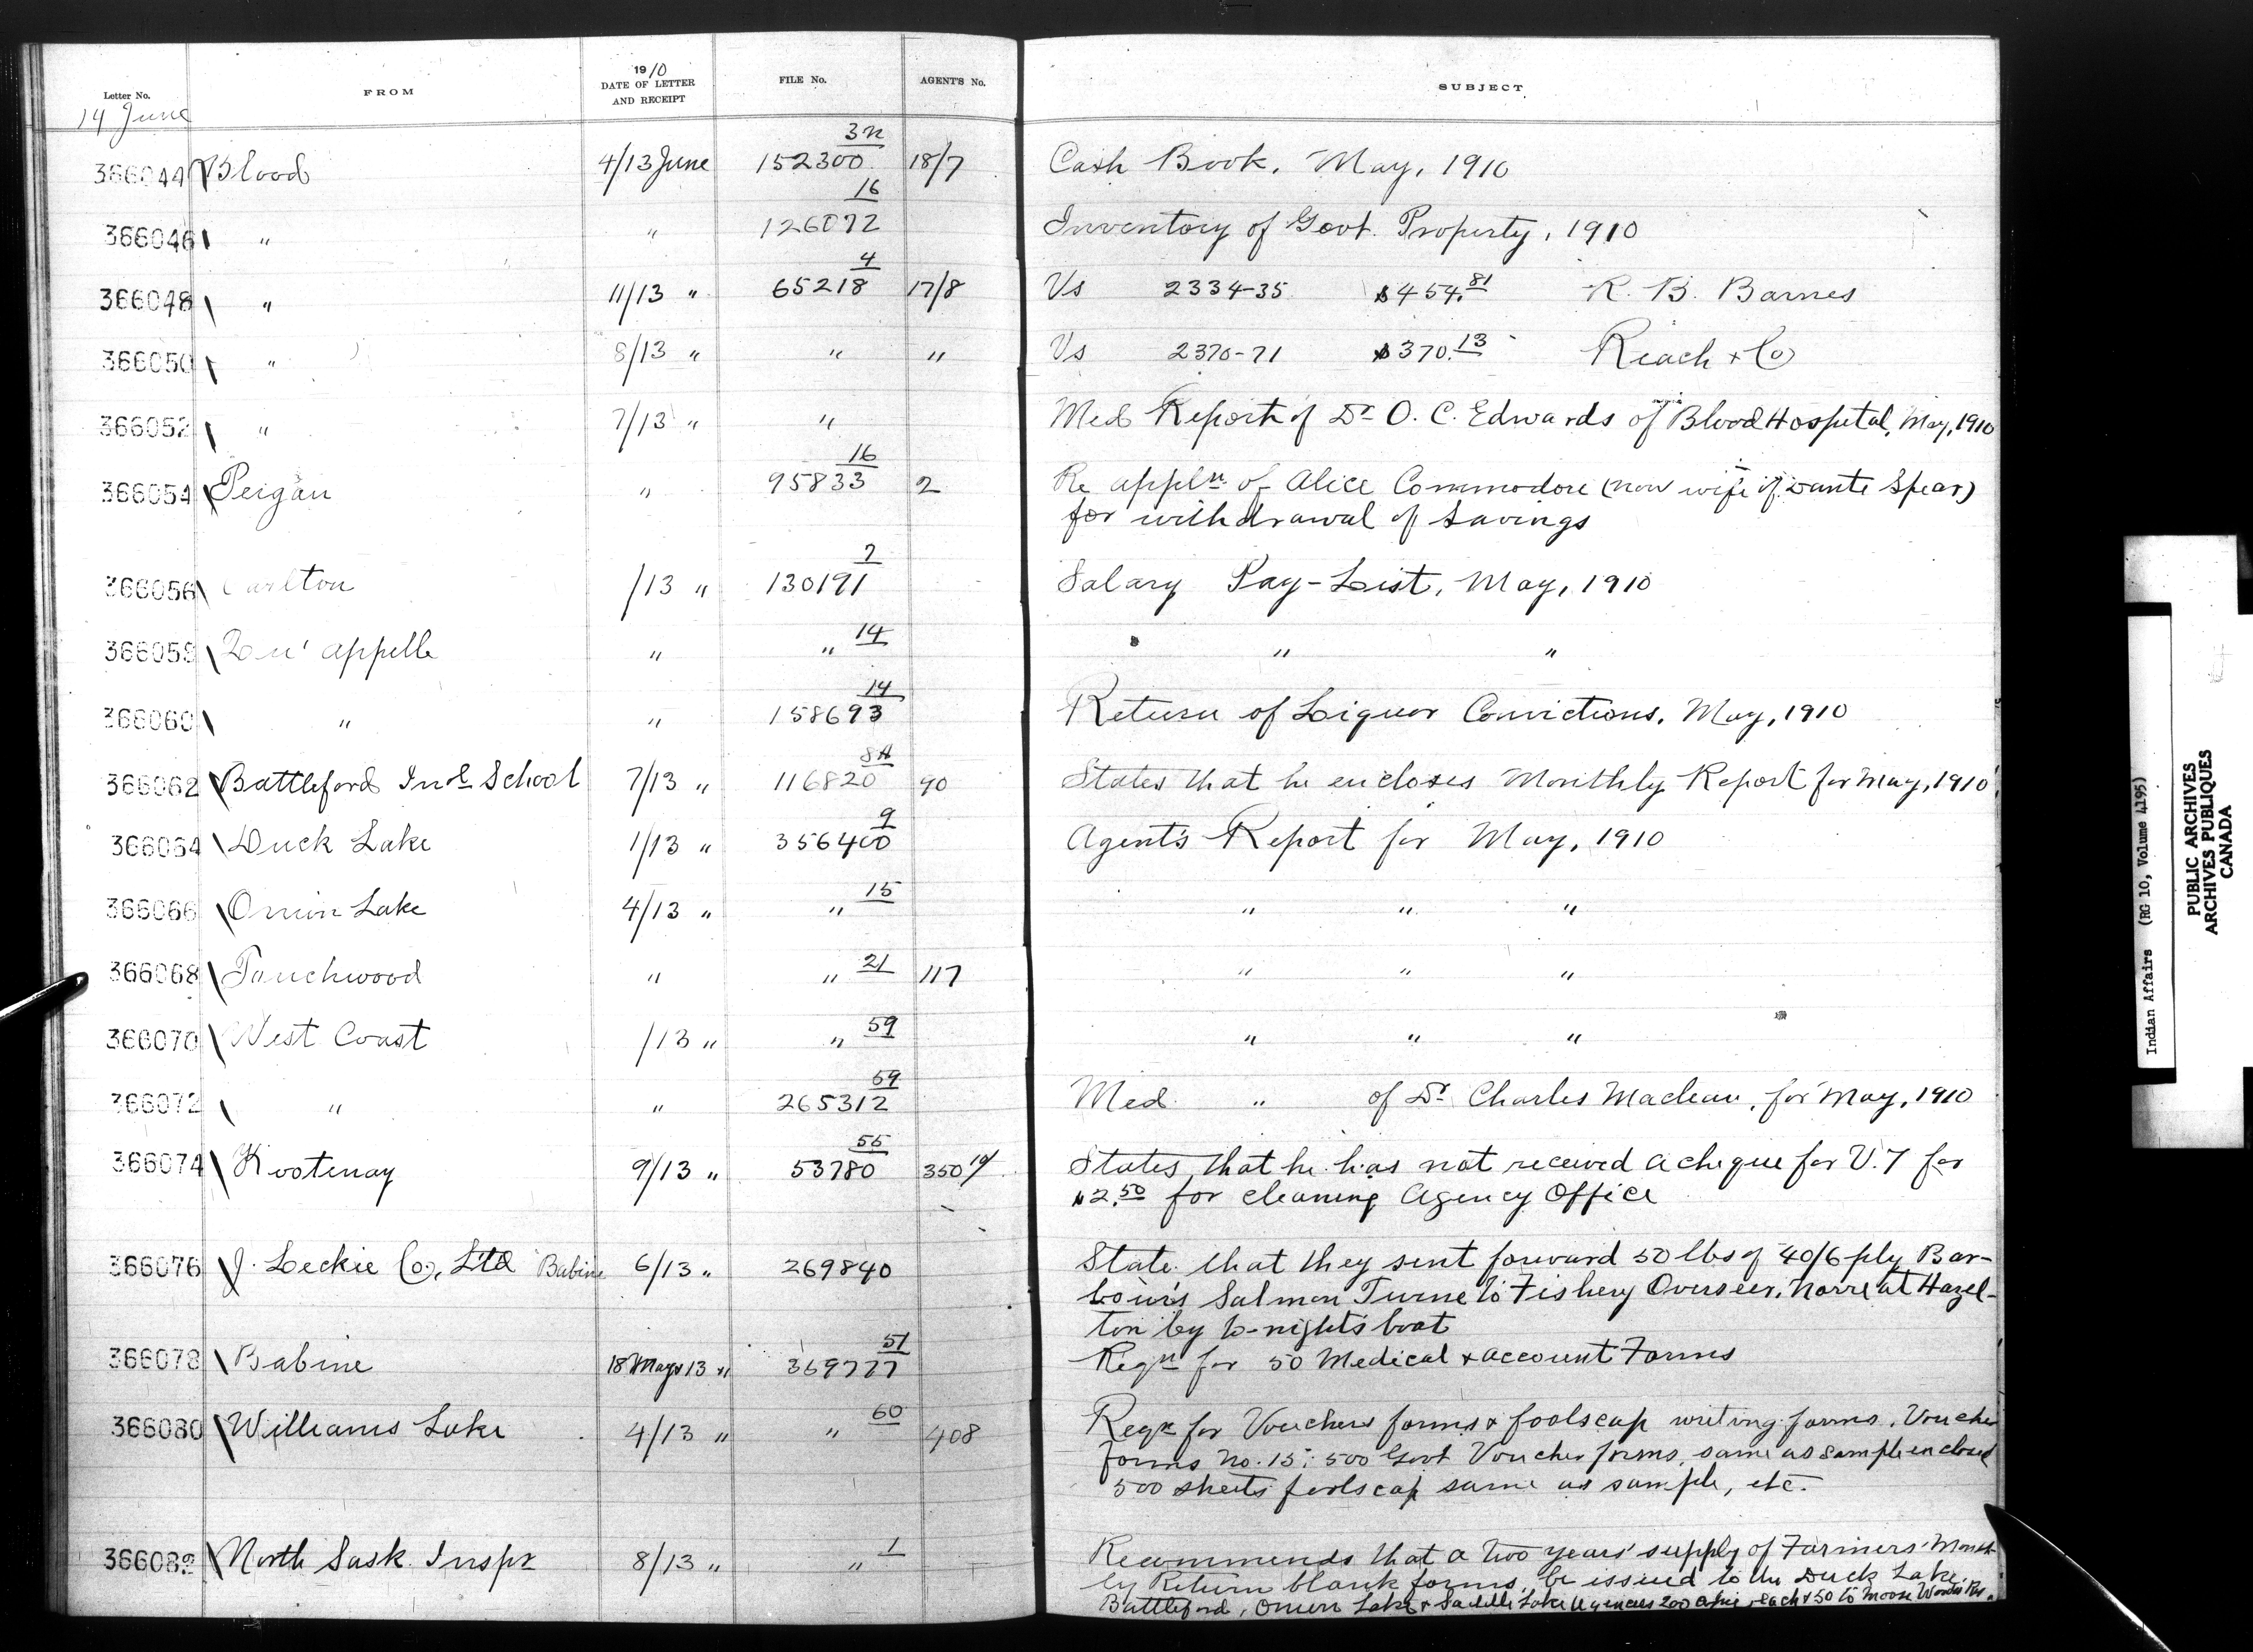 Letter No. FROM 1910 DATE OF LETTER AND RECEIPT FILE No. AGENT'S No. SUBJECT
14 June
366044 Blood 4/13 June 152300 3n 18/7 Cash Book, May, 1910
366046 " " 126072 16 Inventory of Govt. Property, 1910
366048 " 11/13 " 65218 4 17/8 Vs 2334-35 $454.81 R. B. Barnes
366050 " 8/13 " " " Vs 2370-71 $370.13 Reach & Co
366052 " 7/13 " " Med Report of Dr O. C. Edwards of Blood Hospital, May, 1910
366054 Peigan " 95833 16 2 Re appln of Alice Commodore (now wife of Spear)
for withdrawal of savings
366056 Carlton /13 " 130191 7 Salary Pay-List, May, 1910
366058 Qu'appelle " " 14 " "
366060 " " 158693 14 Return of Liquor Convictions, May, 1910
366062 Battleford Indl School 7/13 " 116820 8A 90 States that he encloses Monthly Report for May, 1910
366064 Duck Lake 1/13 " 356400 9 Agent's Report for May, 1910
366066 Onion Lake 4/13 " " 15 " " "
366068 Touchwood " " 21 117 " " "
366070 West Coast /13 " " 59 " " "
366072 " " 265312 59 Med " of Dr Charles Maclean, for May, 1910
366074 Kootenay 9/13 " 53780 55 350 States that he has not received a cheque for V. 7 for
$2.50 for cleaning Agency Office
366076 J. Leckie Co, Ltd Babine 6/13 " 269840 State that they sent forward 50 lbs of 40/6 ply Bar-
bour's Salmon Twine to Fishery Overseer, Norrie at Hazel-
ton by to-night's boat
366078 Babine 18 May 13 " 369777 51 Reqn for 50 Medical & account Forms
366080 Williams Lake 4/13 " " 60 408 Reqn for Vouchers forms & foolscap writing forms, Voucher
forms No. 15; 500 Govt Voucher forms, same as sample enclosed
500 sheets foolscap same as sample, etc.
366082 North Sask. Inspr 8/13 " " 1 Recommends that a two years' supply of Farmers' Month-
ly Return blank forms, be issued to the Duck Lake,
Battleford, Onion Lake & Saddle Lake Agencies 200 each & 50 to Moose Woods Res.
Indian Affairs (RG 10, Volume 4195)
PUBLIC ARCHIVES
ARCHIVES PUBLIQUES
CANADA